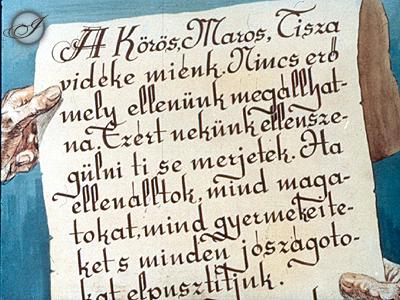 A Körös, Maros, Tisza
vidéke miénk. Nincs erő
mely ellenünk megállhat-
na. Ezért nekünk ellensze-
gülni ti se merjetek. Ha
ellenálltok, mind maga-
tokat, mind gyermekeite-
ket s minden jószágoto-
kat elpusztítjuk.